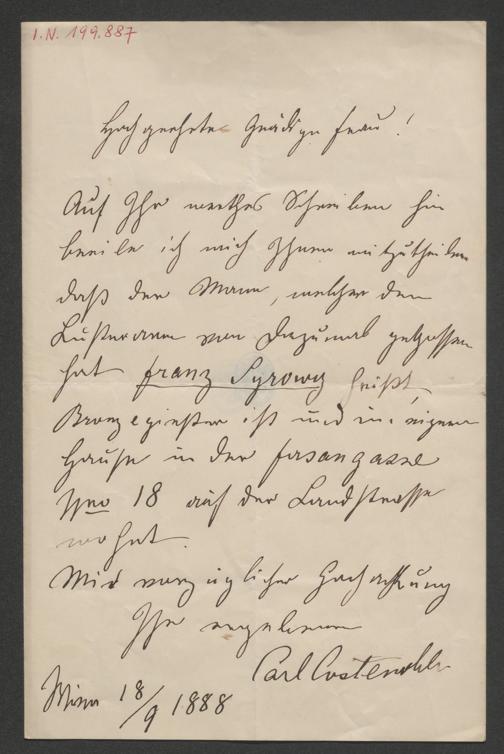 I.N. 199.887
Hochgeehrte Gnädige Frau!
Auf Ihr werthes Schreiben hin
beeile ich mich Ihnen mitzutheilen
daß der Mann, welcher den
von dazumal gegossen
hat Franz Syrowy heißt,
Bronzegießer ist und im eigenen
Hause in der Fasangasse
Nro 18 auf der Landstrasse
wohnt.
Mit vorzüglicher Hochachtung
Ihr ergebener
Carl Costenoble
Wien 18/9 1888